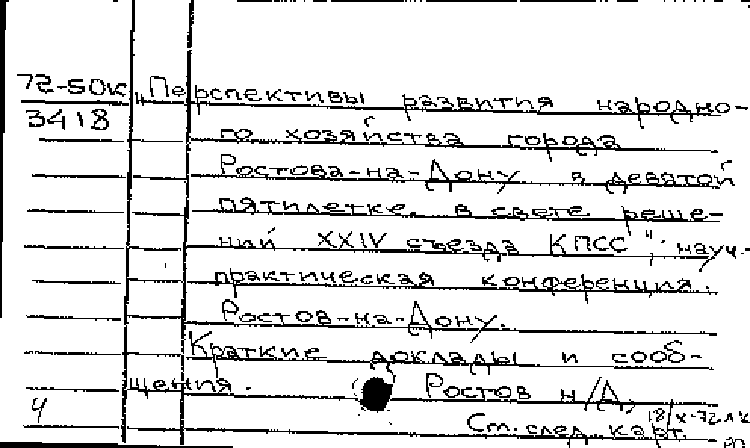 72-50к „Перспективы развития народно-
3418
го хозяйства города
Ростова-на-Дону в девятой
пятилетке в свете реше-
ний XXIV съезда КПСС", науч.-
практическая конференция.
Ростов-на-Дону.
Краткие доклады и сооб-
щения. Ростов н/Д,
4
18/X-72
См. след. карт.